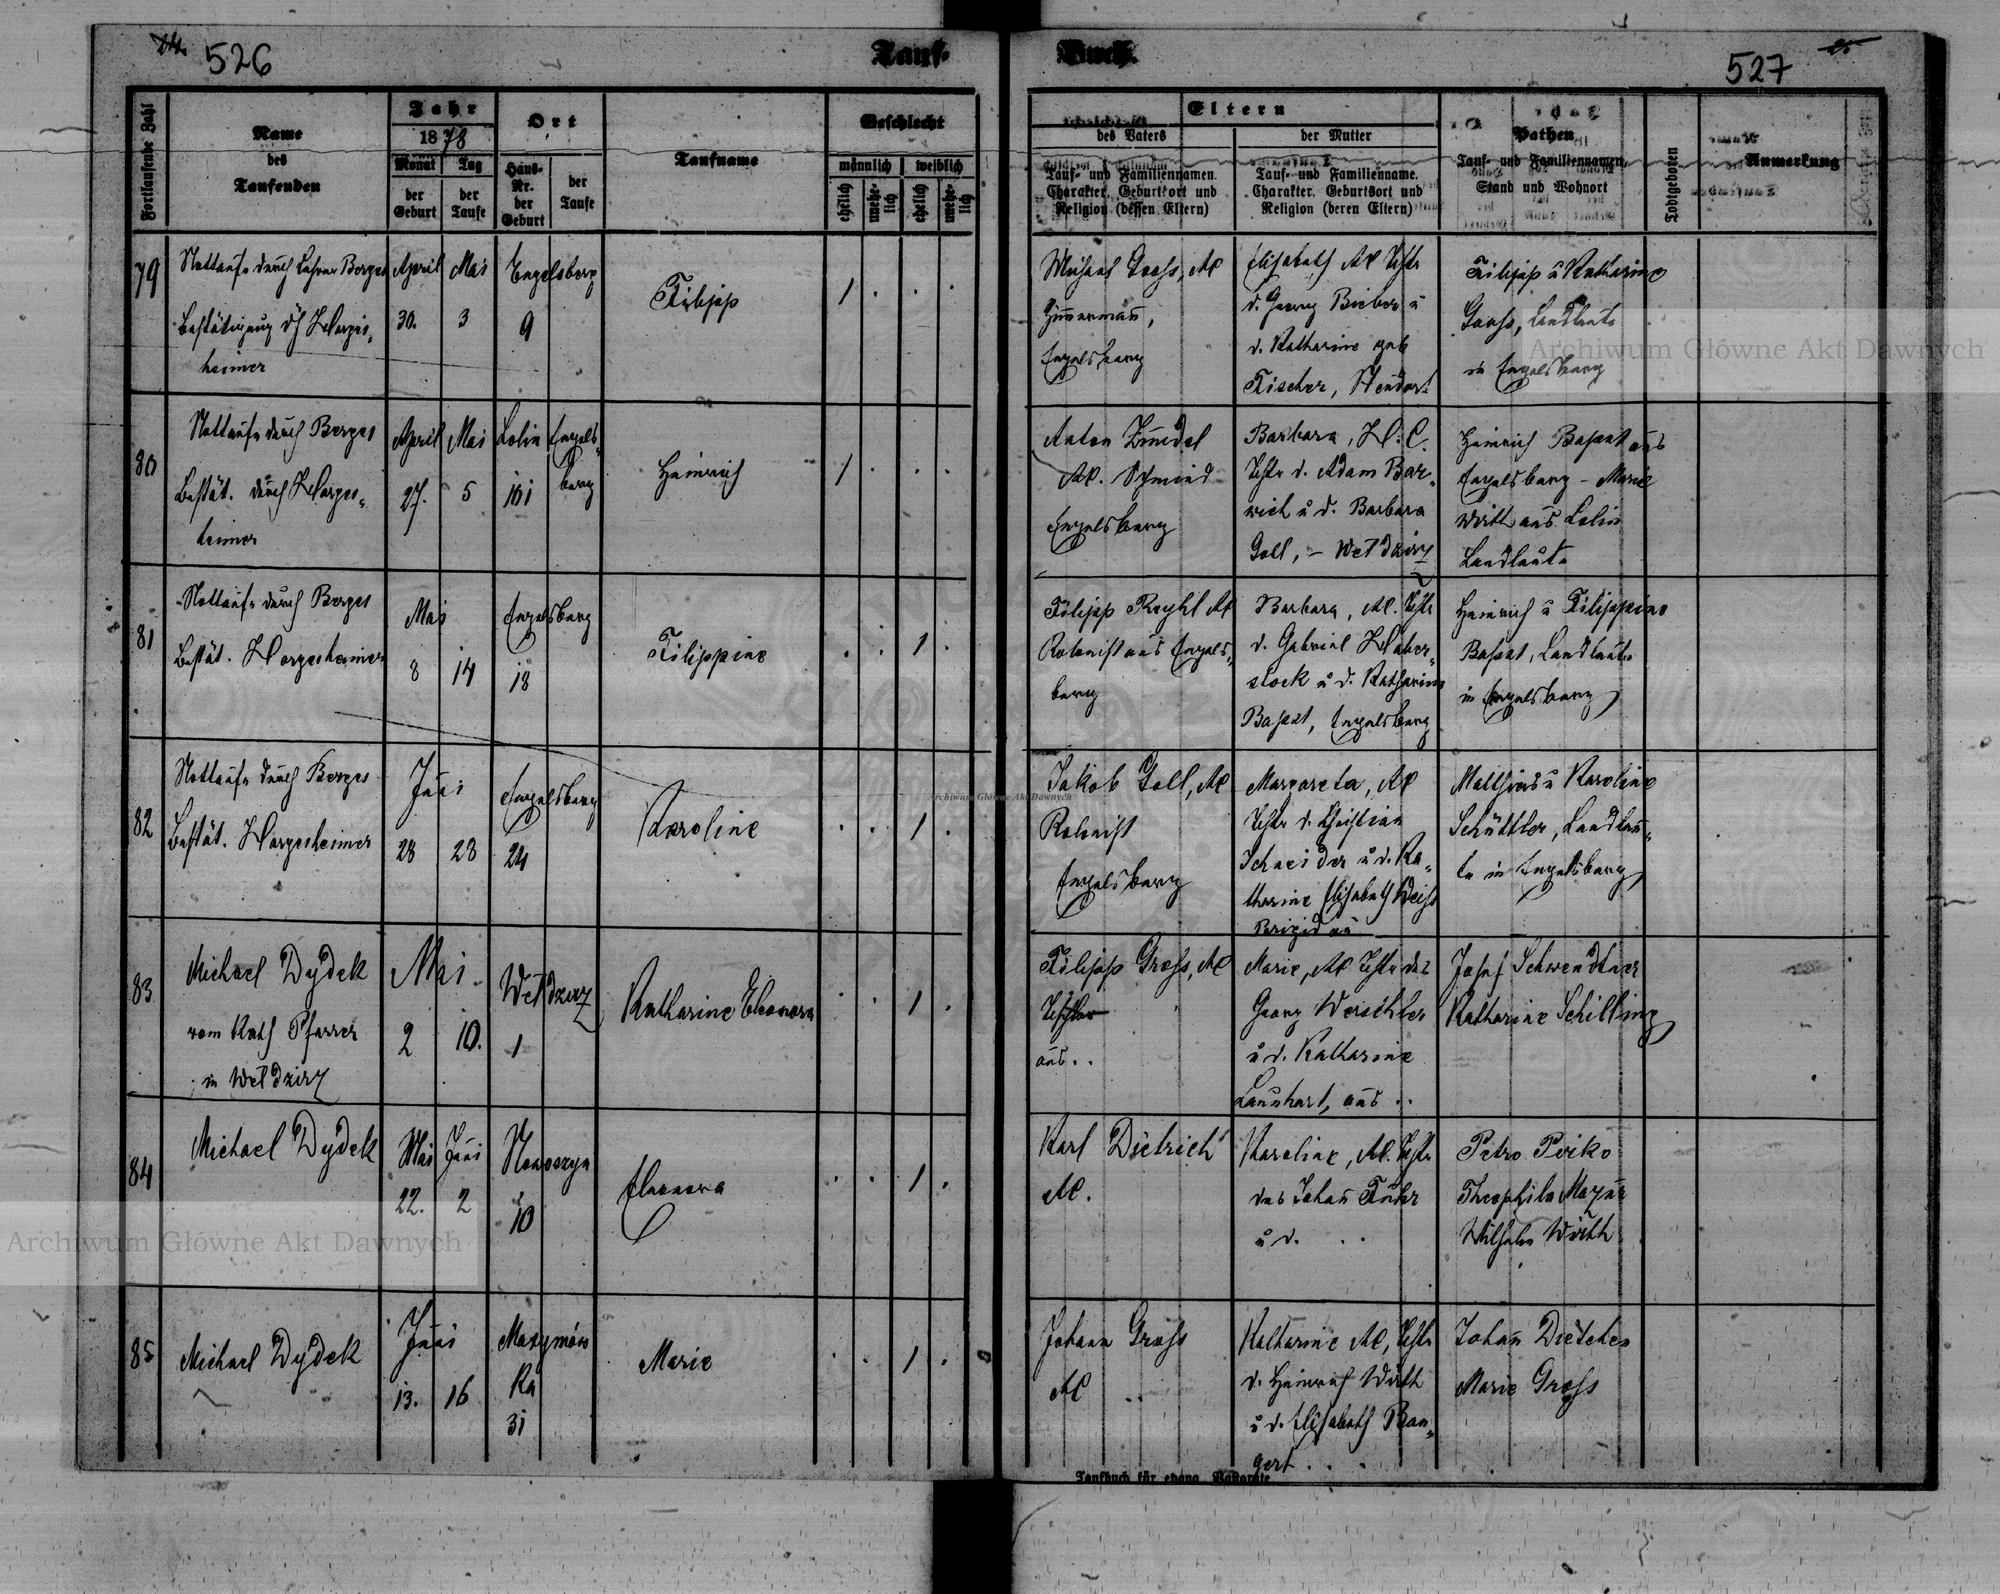 526
Tauf-
Buch.
527
Fortlaufende Zahl
Name
des
Taufenden
Jahr
1878
Monat
Tag
der
Geburt
der
Taufe
Ort
Haus-
Nr.
der
Geburt
der
Taufe
Taufname
Geschlecht
männlich
weiblich
ehelich
unehe-
lich
ehelich
unehe-
lich
Eltern
des Vaters
der Mutter
Tauf- und Familiennamen.
Charakter. Geburtsort und
Religion (dessen Eltern)
Tauf- und Familienname.
Charakter. Geburtsort und
Religion (deren Eltern)
Pathen
Tauf- und Familiennamen,
Stand und Wohnort
Todtgeboren
Anmerkung
79
Nottaufe durch Lehrer Berges
Bestätigung d'h Harges-
heimer
April
30.
Mai
3
Engelsberg
9
Filipp
1 . . .
Michael Gross, AC
Zimmermañ,
Engelsberg
Elisabeth AC Tchtr
d. Georg Bieber u
d. Katharine geb
Fischer,
Filipp u Katharine
Gross, Landleute
in Engelsberg
80
Nottaufe durch Berges
Bestät. durch Harges-
heimer
April
27.
Mai
5
Lolin
101
Engels-
berg
Heinrich
1 . . .
Anton
AC. Schmied
Engelsberg
Barbara, H. C.
Tchtr d. Adam Bar-
wich u d. Barbara
Goll, - Wełdzirz
Heinrich Bassat aus
Engelsberg - Marie
Wirth aus Lolin
Landleute
81
Nottaufe durch Berges
Bestät. Hargesheimer
Mai
8
14
Engelsberg
18
Filippine
. . 1 .
Filipp AC
Kolonist aus Engels-
berg
Barbara, AC. Tchtr
d. Gabriel Haber-
stock u d. Katharine
Bassat, Engelsberg
Heinrich u Filippine
Bassat, Landleute
in Engelsberg
82
Nottaufe durch Berges
Bestät. Hargesheimer
Juni
28
28
Engelsberg
24
Karoline
. . 1 .
Jakob Goll, AC
Kolonist
Engelsberg
Margareta, AC
Tchtr d. Christian
Schneider u d. Ka-
tharine Elisabeth Weiss
Brigidau
Matthias u Karoline
Schüttler, Landleu-
te in Engelsberg
83
Michael Dydek
rom Kath Pfarrer
in Wełdzirz
Mai
2
10.
Wełdzirz
1
Katharine Eleonora
. . 1 .
Filipp Gross, AC
Tischler
aus . .
Marie, AC Tchtr des
Georg Werschler
u d. Katharine
Launhart, aus . .
Josef Schwendtner
Katharine Schilling
84
Michael Dydek
Mai
22.
Juni
2
Nowoszyn
10
Eleonora
. . 1 .
Karl Dietrich
AC.
Karoline, AC. Tchtr
des Johañ Fuhr
u d. . .
Petro Poiko
Theophila Mazur
Wilhelm Wirth
85
Michael Dydek
Juni
13.
16
Maxymów
ka
31
Marie
. . 1 .
Johann Gross
AC . .
Katharine AC, Tchtr
d. Heinrich Wirth
u d. Elisabeth Ban-
gert . . .
Johañ Dietches
Marie Gross
Taufbuch für evang. Pastorate
Archiwum Główne Akt Dawnych
Archiwum Główne Akt Dawnych
Archiwum Główne Akt Dawnych